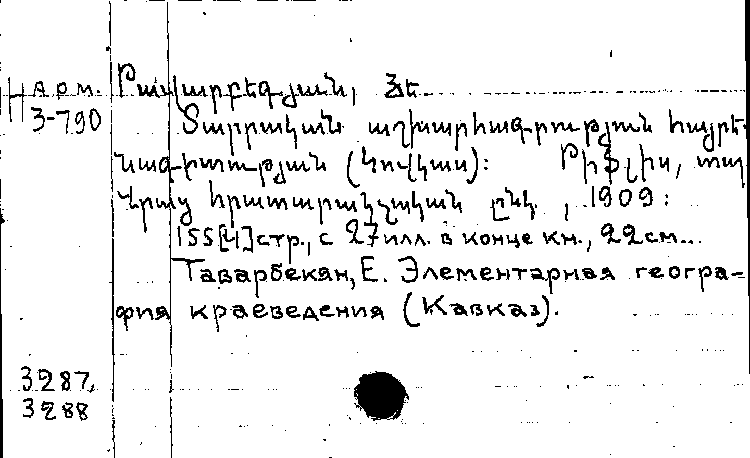 Арм.
3-790
Թավարբեգյան, Եե
Տարրական աշխարհագրություն հայրե-
նագիտության (Կովկաս): Թիֆլիս, տպ
Վրաց հրատարակչական ընկ., 1909:
155[4]стр., с 27 илл. в конце кн., 22 см...
Таварбекян, Е. Элементарная геогра-
фия краеведения (Кавказ).
3287,
3288